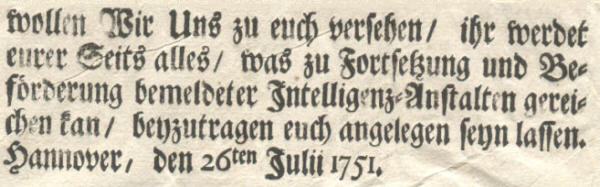 wollen Wir Uns zu euch versehen/ ihr werdet
eurer Seits alles/ was zu Fortsetzung und Be-
förderung bemeldeter Intelligenz-Anstalten gerei-
chen kan/ beyzutragen euch angelegen seyn lassen.
Hannover, den 26ten Julii 1751.